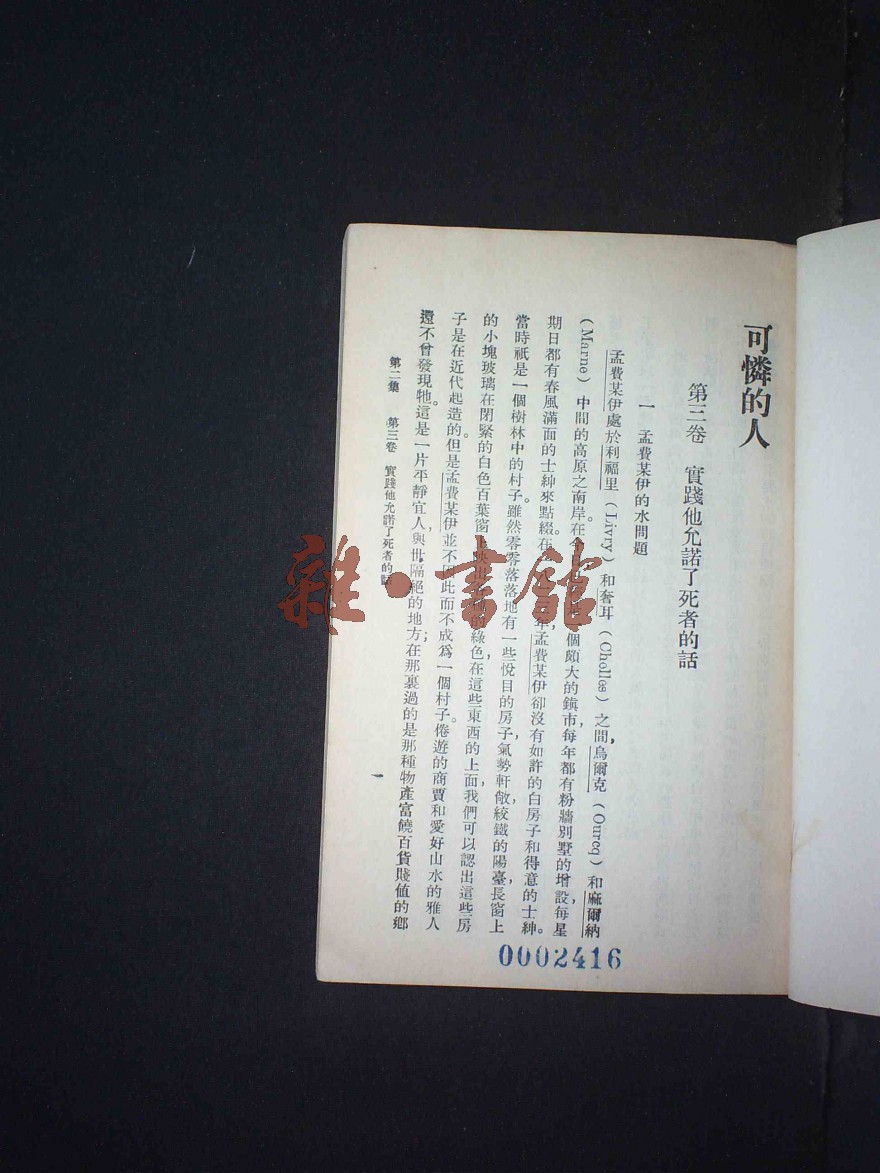 可憐的人
第三卷 實踐他允諾了死者的話
一 孟費某伊的水問題
孟費某伊處於利福里(Livry)和奢耳(Chelles)之間,烏爾克(Ourcq)和麻爾納
(Marne)中間的高原之南岸。在今 個頗大的鎮市,每年都有粉牆別墅的增設,每星
期日都有春風滿面的士紳來點綴。在 年,孟費某伊卻沒有如許的白房子和得意的士紳。
當時祇是一個樹林中的村子。雖然零零落落地有一些悅目的房子,氣勢軒敞,絞鐵的陽臺,長窗上
的小塊玻璃在閉緊的白色百葉窗上映出 的綠色,在這些東西的上面,我們可以認出這些房
子是在近代起造的。但是孟費某伊並不因此而不成爲一個村子。倦遊的商賈和愛好山水的雅人
還不曾發現牠。這是一片平靜宜人,與世隔絕的地方;在那裏過的是那種物產富饒百貨賤值的鄉
第二集 第三卷 實踐他允諾了死者的話
一
0002416
雜·書館